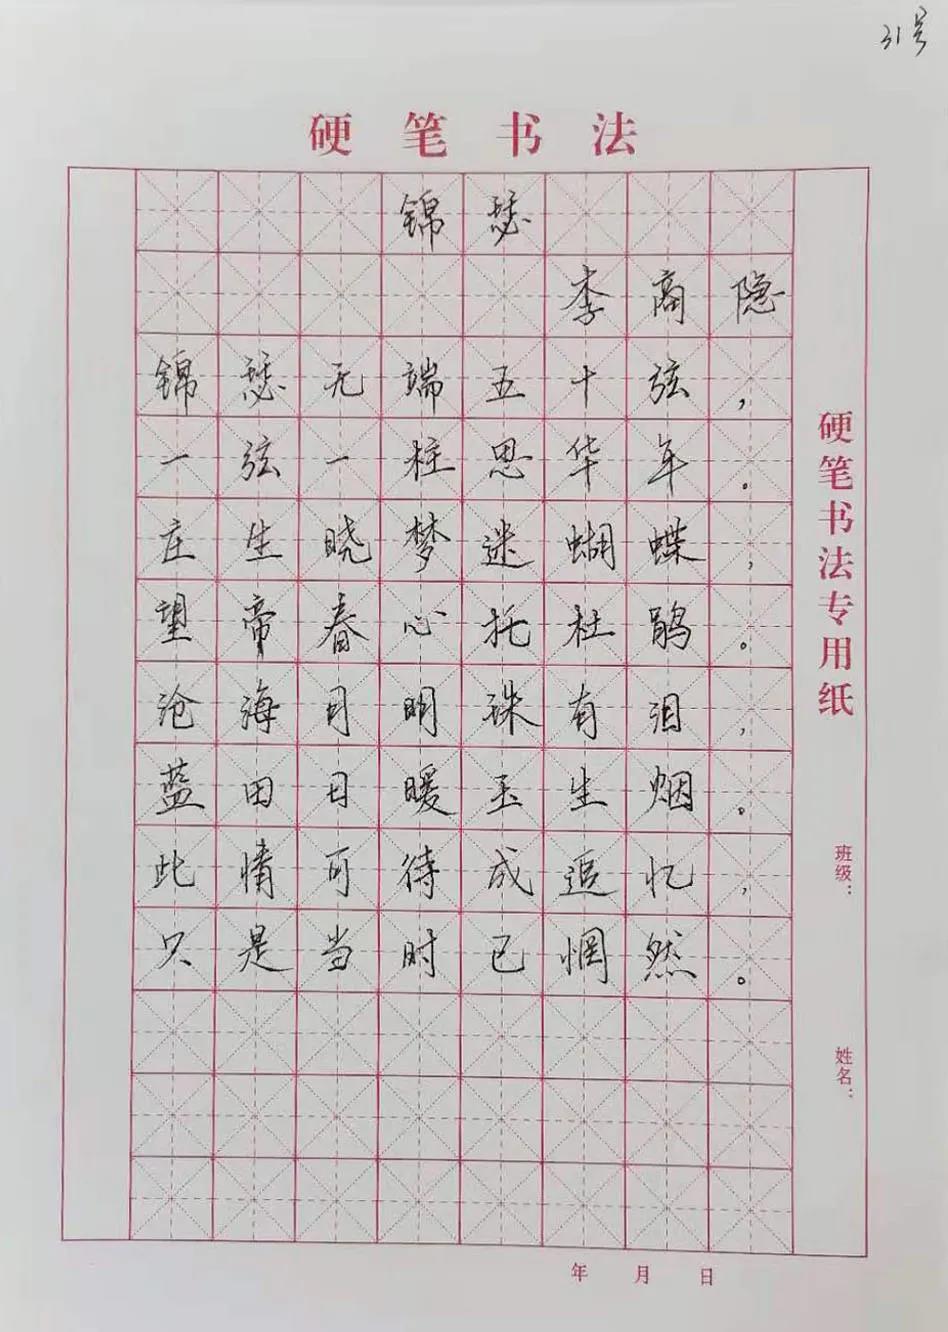 31号
硬笔书法
锦瑟
李商隐
锦瑟无端五十弦，
一弦一柱思华年。
庄生晓梦迷蝴蝶，
望帝春心托杜鹃。
沧海月明珠有泪，
蓝田日暖玉生烟。
此情可待成追忆，
只是当时已惘然。
硬笔书法专用纸
班级：
姓名：
年 月 日